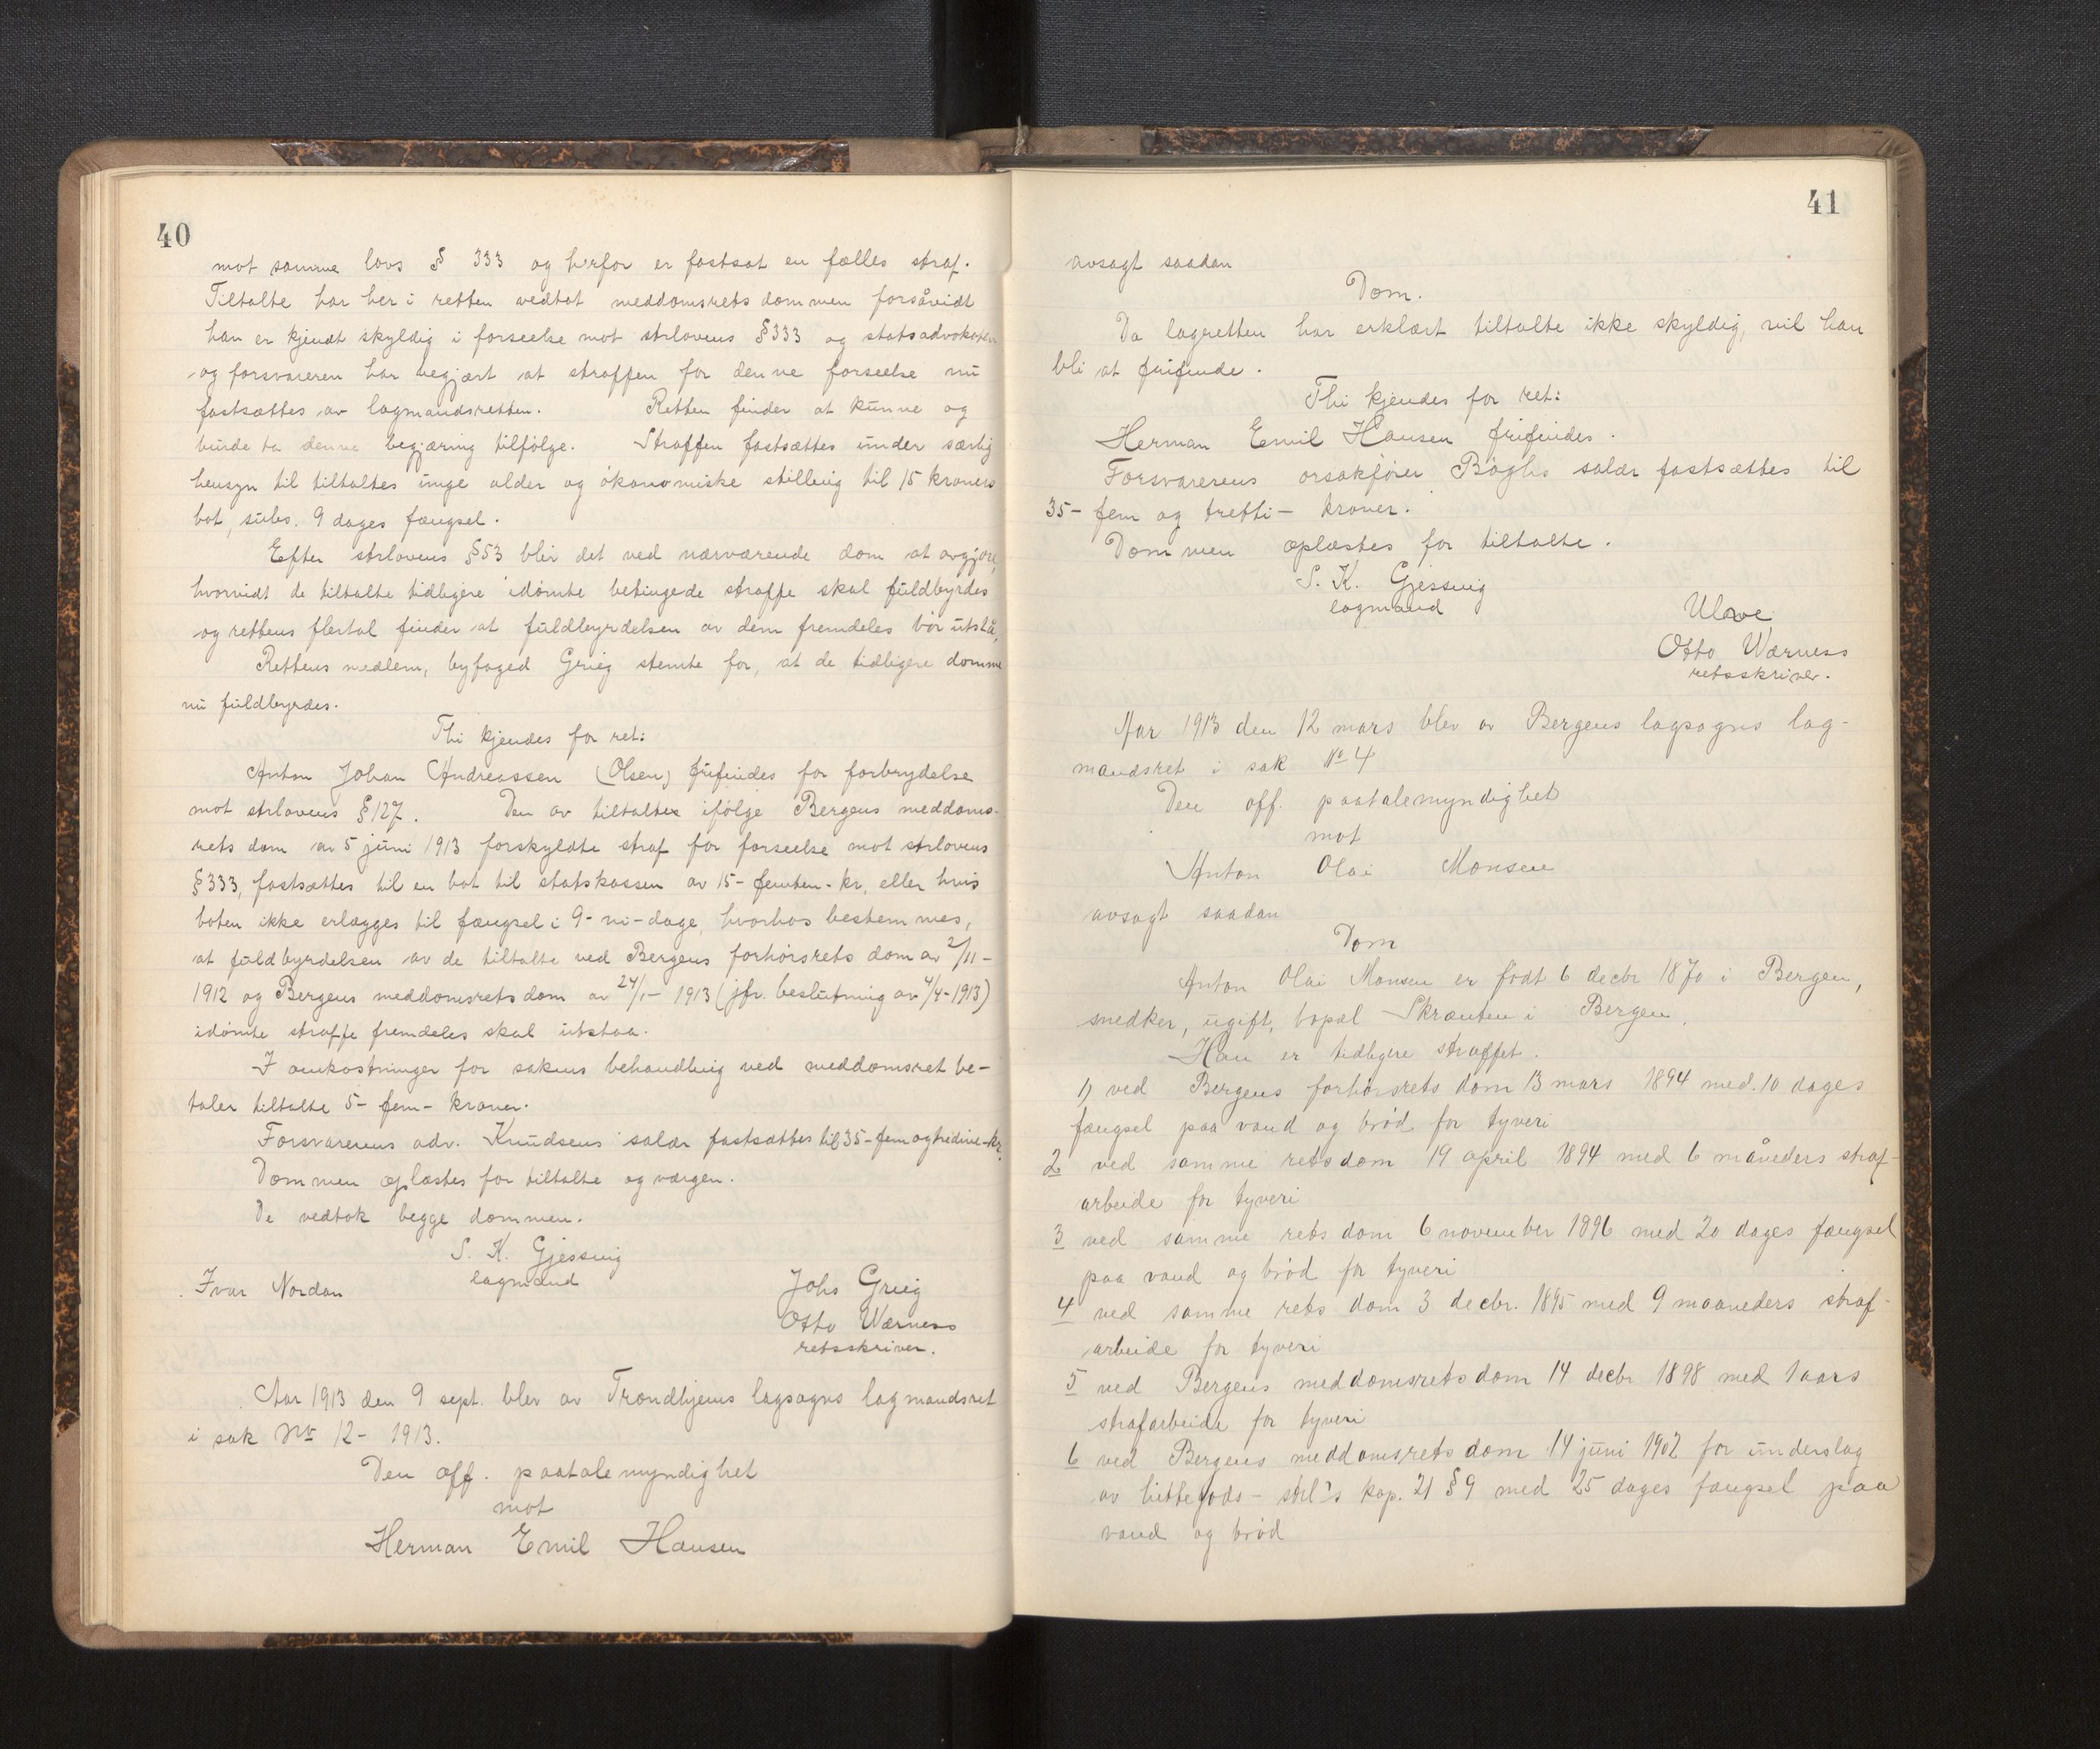 40
mot samme lovs § 333 og herfor er fastsat en fælles straf.
Tiltalte har her i retten vedtat meddomsretsdommen forsåvidt
han er kjendt skyldig i forseelse mot strlovens § 333 og statsadvokaten
og forsvareren har begjært at straffen for denne forseelse nu
fastsættes av lagmandsretten. Retten finder at kunne og
burde ta denne begjæring tilfølge. Straffen fastsættes under særlig
hensyn til tiltaltes unge alder og økonomiske stilling til 15 kroners
bot, subs. 9 dages fængsel.
Efter strlovens § 53 blir det ved nærværende dom at avgjøre,
hvorvidt de tiltalte tidligere idømte betingede straffe skal fuldbyrdes
og rettens flertal finder at fuldbyrdelsen av dem fremdeles bør utstå,
Rettens medlem, byfoged Grieg stemte for, at de tidligere domme
nu fuldbyrdes.
Thi kjendes for ret:
Anton Johan Andreassen (Olsen) frifindes for forbrydelse
mot strlovens § 127. Den av tiltalte ifølge Bergens meddoms-
rets dom av 5 juni 1913 forskyldte straf for forseelse mot strlovens
§ 333, fastsættes til en bot til statskassen av 15 - femten - kr, eller hvis
boten ikke erlægges til fængsel i 9 - ni - dage, hvorhos bestemmes,
at fuldbyrdelsen av de tiltalte ved Bergens forhørsrets dom av 2/11 -
1912 og Bergens meddomsrets dom av 24/1 - 1913 (jfr. beslutning av 4/4 - 1913)
idømte straffe fremdeles skal utstaa.
I omkostninger for sakens behandling ved meddomsret be-
taler tiltalte 5 - fem - kroner.
Forsvarerens adv. Knudsens salær fastsættes til 35 - fem og tredive - kr.
Dommen oplæstes for tiltalte og vergen.
De vedtok begge dommen.
S. K. Gjessing
lagmand
Ivar Nordan
Johs Grieg
Otto Wærness
retsskriver.
Aar 1913 den 9 sept. blev av Trondhjems lagsogns lagmandsret
i sak No 12 - 1913.
Den off. paatalemyndighet
mot
Herman Emil Hansen
41
avsagt saadan
Dom.
Da lagretten har erklært tiltalte ikke skyldig, vil han
bli at frifinde.
Thi kjendes for ret:
Herman Emil Hansen frifindes.
Forsvarerens orsakfører Bøghs salær fastsættes til
35 - fem og tretti - kroner.
Dommen oplæstes for tiltalte.
S. K. Gjessing
lagmand
Ulove
Otto Wærness
retsskriver.
Aar 1913 den 12 mars blev av Bergens lagsogns lag-
mandsret i sak No 4
Den off. paatalemyndighet
mot
Anton Olai Monsen
avsagt saadan
Dom
Anton Olai Monsen er født 6 decbr 1870 i Bergen,
snedker, ugift, bopæl Skrænten i Bergen.
Han er tidligere straffet.
1) ved Bergens forhørsrets dom 13 mars 1894 med 10 dages
fængsel paa vand og brød for tyveri
2 ved samme rets dom 19 april 1894 med 6 måneders straf-
arbeide for tyveri
3 ved samme rets dom 6 november 1896 med 20 dages fængsel
paa vand og brød for tyveri
4 ved samme rets dom 3 decbr. 1895 med 9 maaneders straf-
arbeide for tyveri
5 ved Bergens meddomsrets dom 14 decbr 1898 med 1 aars
strafarbeide for tyveri
6 ved Bergens meddomsrets dom 14 juni 1902 for underslag
av hittegods - strl's kap. 21 § 9 med 25 dages fængsel paa
vand og brød